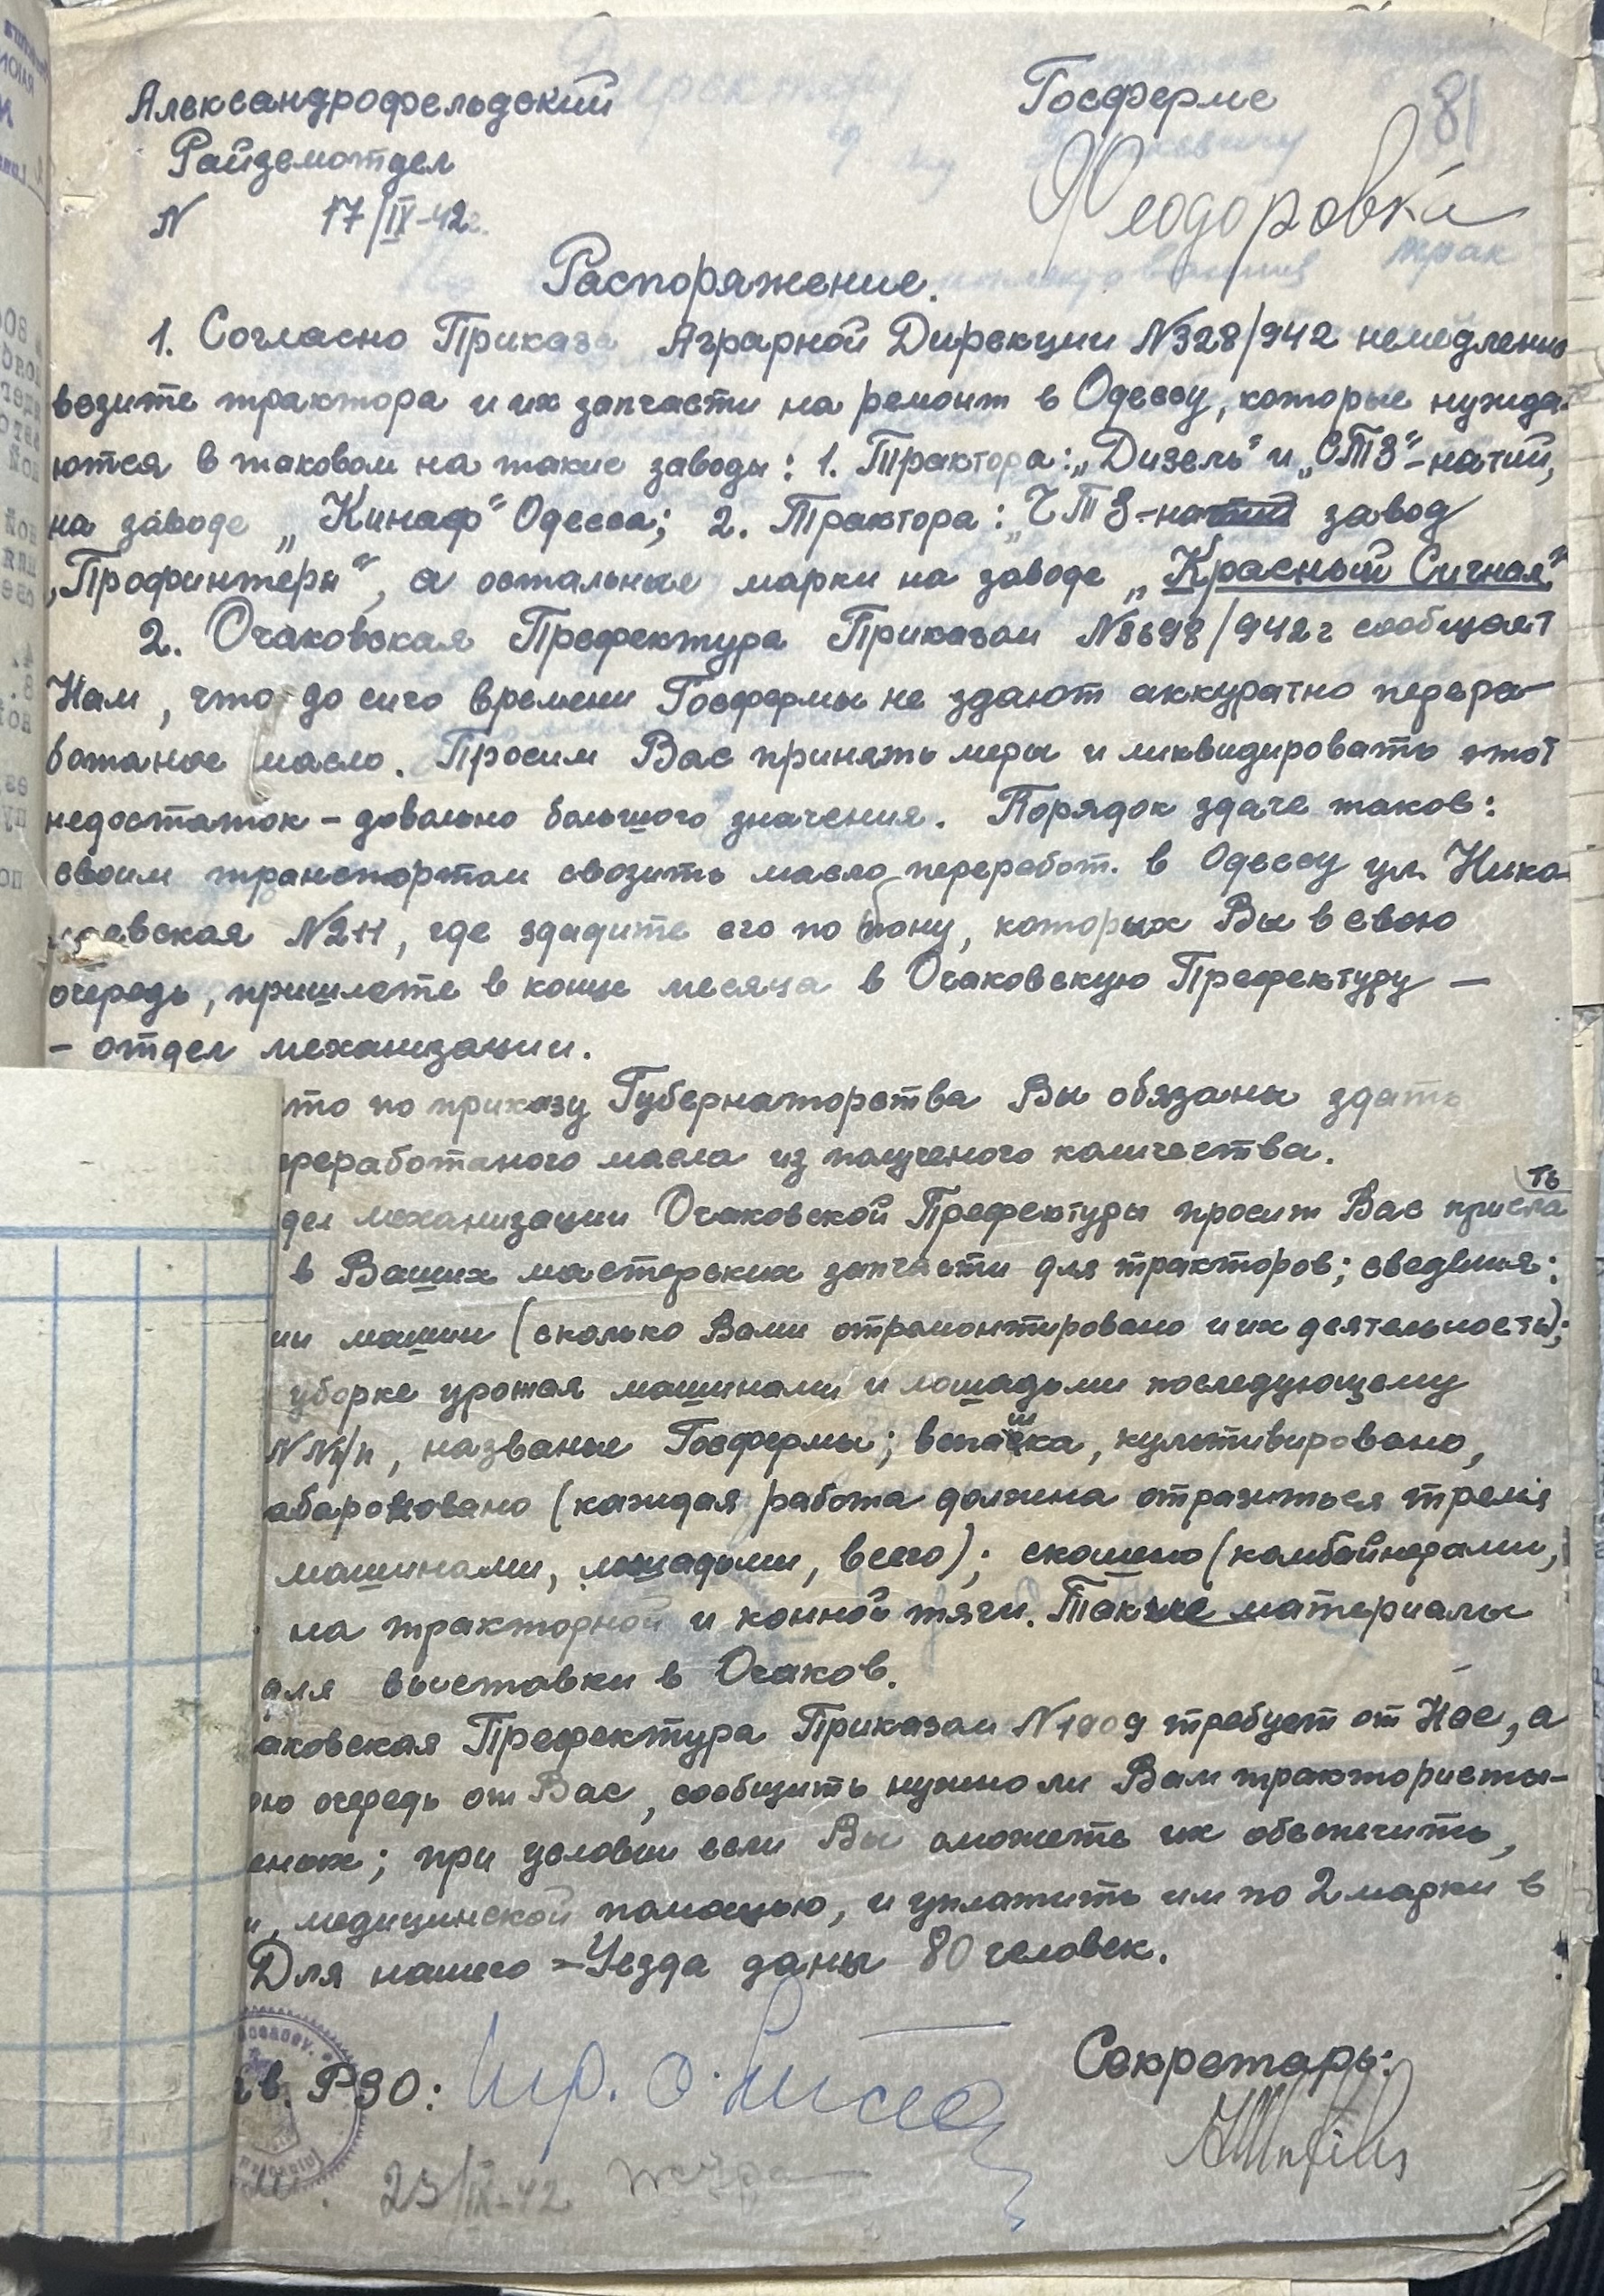 81
Александрофельдский
Райземотдел
N 17/IX-42г.
Госферме
Феодоровка
Распоряжение.
1. Согласно Приказа Аграрной Дирекции N328/942 немедленно
везите трактора и их запчасти на ремонт в Одессу, которые нужда-
ются в таковом на такие заводы: 1. Трактора: „Дизель" и „СТЗ"-натий,
на заводе „Кинаф" Одесса; 2. Трактора: „ЧТЗ-натий завод
„Профинтерн", а остальные марки на заводе „Красный Сигнал"
2. Очаковская Префектура Приказом N8698/942г сообщает
Нам, что до сиго времени Госфермы не здают аккуратно перера-
ботаное масло. Просим Вас принять меры и ликвидировать этот
недостаток - довольно большого значения. Порядок здаче таков:
своим транспортом свозить масло переработ. в Одессу ул. Нико-
лаевская N211, где здадите его по бону, которых Вы в свою
очередь, пришлете в конце месяца в Очаковскую Префектуру -
- отдел механизации.
что по приказу Губернаторства Вы обязаны здать
ереработаного масла из полученого количества.
дел механизации Очаковской Префектуры просит Вас присла
ть
в Ваших мастерских запчасти для тракторов; сведения:
ии машин (сколько Вами отремонтировано и их деятельность);
уборке урожая машинами и лошадьми последующему
N N п/п, названые Госфермы; вспашка, культивировано,
абароновано (каждая работа должна отразиться тремя
машинами, лошадьми, всего); скошено (комбайнерами,
на тракторной и конной тяги. Такие материалы
для выставки в Очаков.
аковская Префектура Приказом N1909 требует от Нас, а
ою очередь от Вас, сообщить нужно ли Вам трактористы-
еных; при условии если Вы сможете их обеспечить,
и, медицинской помощью, и уплатить им по 2 марки в
Для нашего =Уезда даны 80 человек.
ав. РЗО:
Секретарь:
23/IX-42